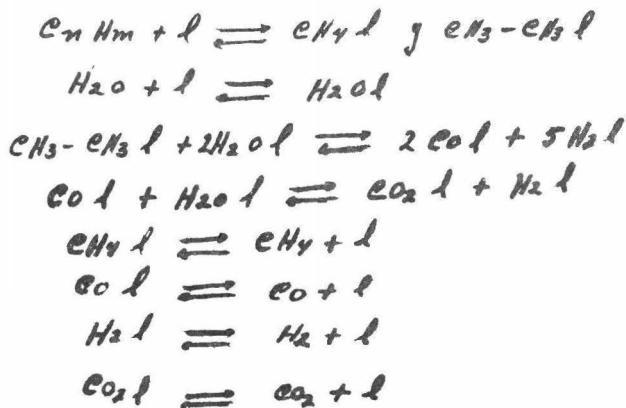 CnHm + l ⇌ CH4 l y CH3-CH3 l
H2O + l ⇌ H2O l
CH3-CH3 l + 2H2O l ⇌ 2 CO l + 5H2 l
CO l + H2O l ⇌ CO2 l + H2 l
CH4 l ⇌ CH4 + l
CO l ⇌ CO + l
H2 l ⇌ H2 + l
CO2 l ⇌ CO2 + l